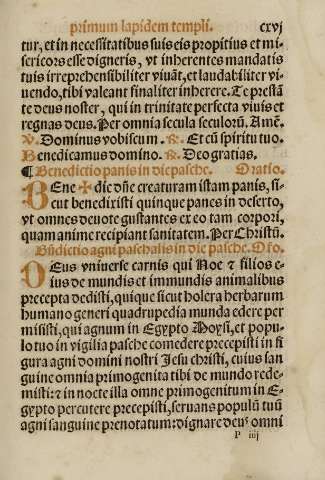 primum lapidem templi. cxvj
tur, et in necessitatibus suis eis propitius et mi-
sericors esse digneris, vt inherentes mandatis
tuis irreprehensibiliter viuãt, et laudabiliter vi-
uendo, tibi valeant finaliter inherere. Te prestã
te deus noster, qui in trinitate perfecta viuis et
regnas deus. Per omnia secula seculorũ. Amẽ.
℣. Dominus vobiscum. ℟. Et cũ spiritu tuo.
Benedicamus domino. ℟. Deo gratias.
¶ Benedictio panis in die pasche. Oratio.
BEne ✠ dic dñe creaturam istam panis, si-
cut benedixisti quinque panes in deserto,
vt omnes deuote gustantes ex eo tam corpori,
quam anime recipiant sanitatem. Per Christũ.
Bñdictio agni paschalis in die pasche. Oño.
DEus vniuerse carnis qui Noe ⁊ filios e-
ius de mundis et immundis animalibus
precepta dedisti, quique sicut holera herbarum
humano generi quadrupedia munda edere per
misisti, qui agnum in Egypto Moysi, et popu-
lo tuo in vigilia pasche comedere precepisti in fi
gura agni domini nostri Jesu christi, cuius san
guine omnia primogenita tibi de mundo rede-
misti: ⁊ in nocte illa omne primogenitum in E-
gypto percutere precepisti, seruans populũ tuũ
agni sanguine prenotatum: dignare deus omni
P iiij